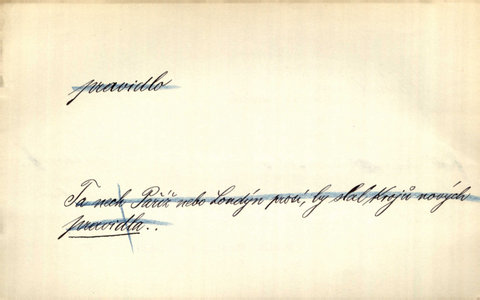 pravidlo
Ta nech Paříž nebo Londýn prosí, by slal Krojů nových
pravidla..